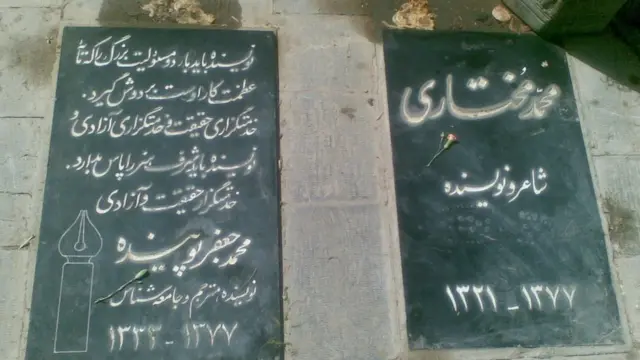 محمد مختاری
شاعر و نویسنده
۱۳۲۱ - ۱۳۷۷
نویسنده باید بار دو مسئولیت بزرگ را که تمام
عظمت کار اوست بر دوش گیرد.
خدمتگزاری حقیقت و خدمتگزاری آزادی و
نویسنده باید شرف هنر را پاس بدارد.
خدمتگزار حقیقت و آزادی
محمد جعفر پوینده
نویسنده مترجم و جامعه‌شناس
۱۳۳۳ - ۱۳۷۷